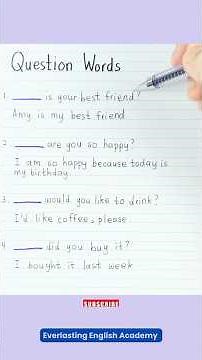 Question Words
1. ______ is your best friend?
Amy is my best friend
2. ______ are you so happy?
I am so happy because today is
my birthday.
3. ______ would you like to drink?
I'd like coffee, please.
4 ______ did you buy it?
I bought it last week
SUBSCRIBE
Everlasting English Academy